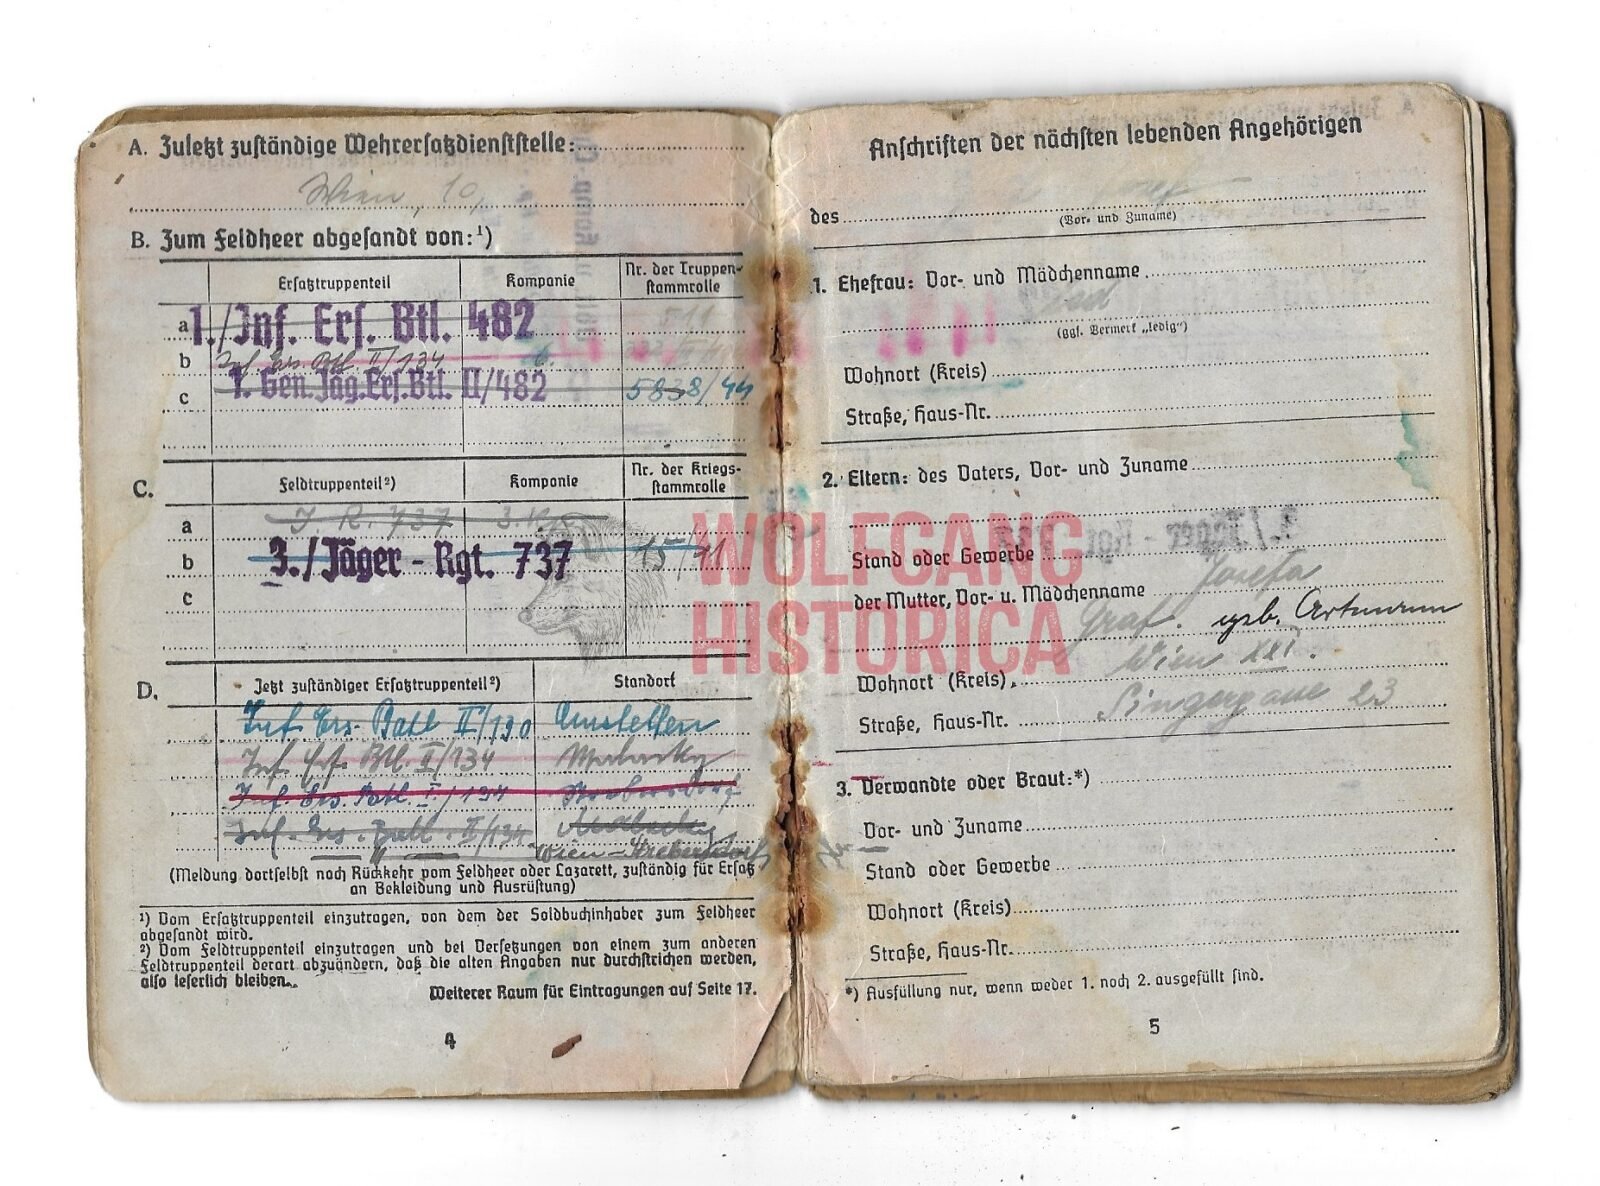 A. Zuletzt zuständige Wehrersatzdienststelle:
Wien, 10,
B. Zum Feldheer abgesandt von:¹)
Ersatztruppenteil
Kompanie
Nr. der Truppen-
stammrolle
a
1./Inf. Ers. Btl. 482
b
Inf. Ers. Btl. II/134
c
1. Gen.Jäg.Ers.Btl. II/482
5838/44
C.
Feldtruppenteil²)
Kompanie
Nr. der Kriegs-
stammrolle
a
J. R. 737
3.
b
3./Jäger - Rgt. 737
15/41
c
D.
Jetzt zuständiger Ersatztruppenteil²)
Standort
Inf. Ers. Batl. II/130
Amstetten
Inf. Ers. Btl. II/134
Inf. Ers. Batl. I/134
Inf. Ers. Batl. II/134
Wien-Strebersdorf
(Meldung dortselbst nach Rückkehr vom Feldheer oder Lazarett, zuständig für Ersatz
an Bekleidung und Ausrüstung)
¹) Vom Ersatztruppenteil einzutragen, von dem der Soldbuchinhaber zum Feldheer
abgesandt wird.
²) Vom Feldtruppenteil einzutragen und bei Versetzungen von einem zum anderen
Feldtruppenteil derart abzuändern, daß die alten Angaben nur durchstrichen werden,
also leserlich bleiben.
Weiterer Raum für Eintragungen auf Seite 17.
4
Anschriften der nächsten lebenden Angehörigen
des
(Vor- und Zuname)
1. Ehefrau: Vor- und Mädchenname
(ggf. Vermerk „ledig“)
Wohnort (Kreis)
Straße, Haus-Nr.
2. Eltern: des Vaters, Vor- und Zuname
Stand oder Gewerbe
Josefa
der Mutter, Vor- u. Mädchenname
Graf. geb.
Wien XXI.
Wohnort (Kreis)
Straße, Haus-Nr.
23
3. Verwandte oder Braut:*)
Vor- und Zuname
Stand oder Gewerbe
Wohnort (Kreis)
Straße, Haus-Nr.
*) Ausfüllung nur, wenn weder 1. noch 2. ausgefüllt sind.
5
WOLFGANG
HISTORICA